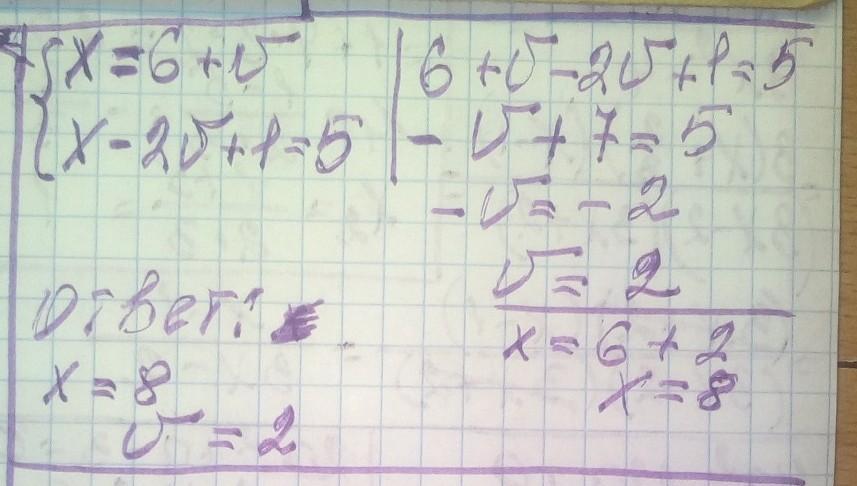 { x = 6 + v
x - 2v + 1 = 5
6 + v - 2v + 1 = 5
- v + 7 = 5
- v = - 2
v = 2
x = 6 + 2
x = 8
Ответ:
x = 8
v = 2